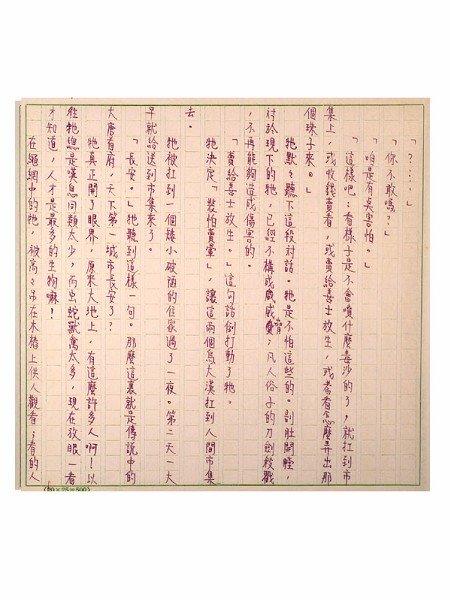 「?⋯⋯」
「你不敢嗎?」
「咱是有奌害怕。」
「這樣吧:看樣子是不會噴什麼毒沙的了,就扛到市
集上,或收錢賣看,或賣給善士放生,或者看怎麼弄出那
個珠子來。」
牠默々聽下這段對話。牠是不怕這些的。剖肚開膛,
對於現下的牠,已經不構成威脅;凡人俗子的刀劍殺戮
,不再能夠造成傷害的。
「賣給善士放生。」這句話倒打動了牠。
牠決定「裝怕賣暈」,讓這兩個烏大漢扛到人間市集
去。
牠被扛到一個矮小破陋的住家過了一夜。第二天一大
早就給送到市集來了。
「長安。」牠聽到這樣一句。那麼這裏就是傳說中的
大唐首府,天下第一城市長安了?
牠真正開了眼界,原來大地上,有這麼許多人啊!以
往牠總是嘆息同類太少,而虫蛇獸禽太多,現在放眼一看
才知道,人才是最多的生物嘛!
在繩網中的牠,被高々吊在木樁上供人觀看;看的人
(20×25=500)